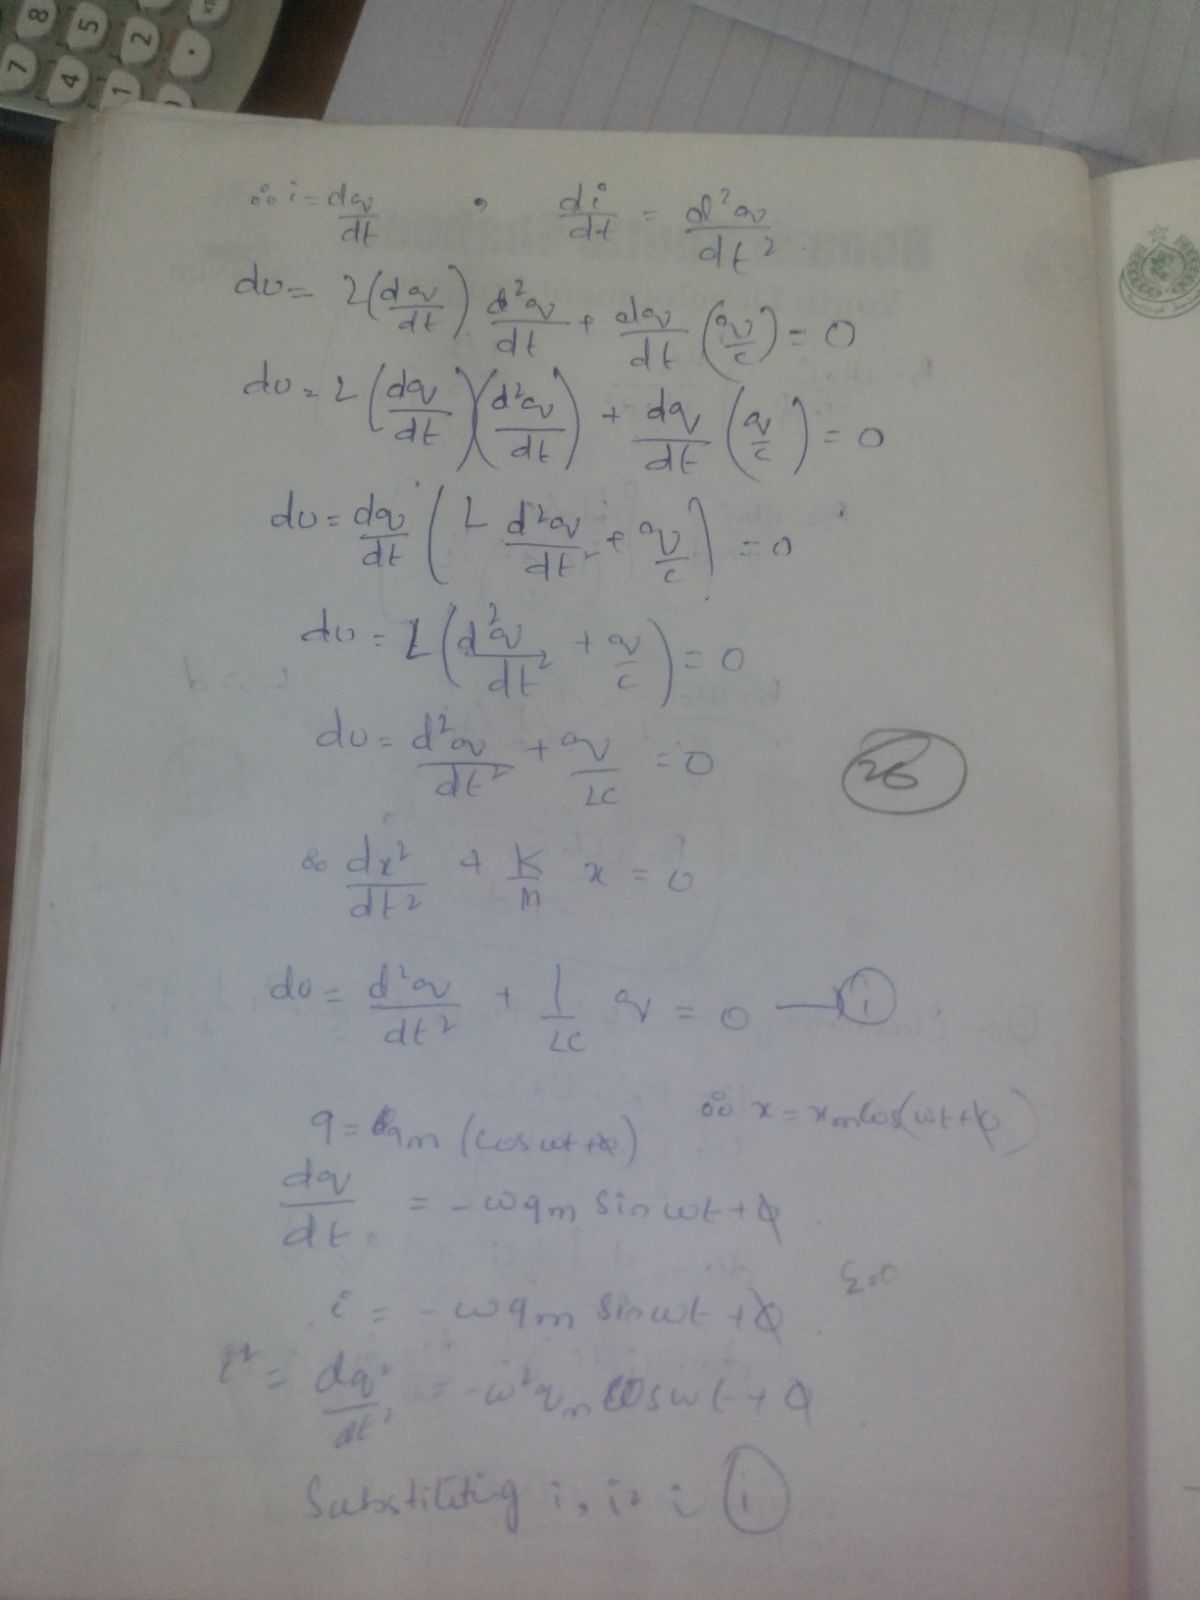 8 5 2 .
7 4 1
∴ i = dq/dt , di/dt = d²q/dt²
du = L(dq/dt) d²q/dt + dq/dt (q/c) = 0
du = L (dq/dt)(d²q/dt) + dq/dt (q/c) = 0
du = dq/dt ( L d²q/dt² + q/c ) = 0
du = L (d²q/dt² + q/c) = 0
du = d²q/dt² + q/LC = 0
26
∴ dx²/dt² + K/m x = 0
du = d²q/dt² + 1/LC q = 0 → (i)
q = qm (cos ωt + φ) ∴ x = xm cos(ωt + φ)
dq/dt = -ωqm sin ωt + φ
ε=0
i = -ωqm sin ωt + φ
i² = dq²/dt² = -ω²qm cos ωt + φ
Substituting i, i² i (i)